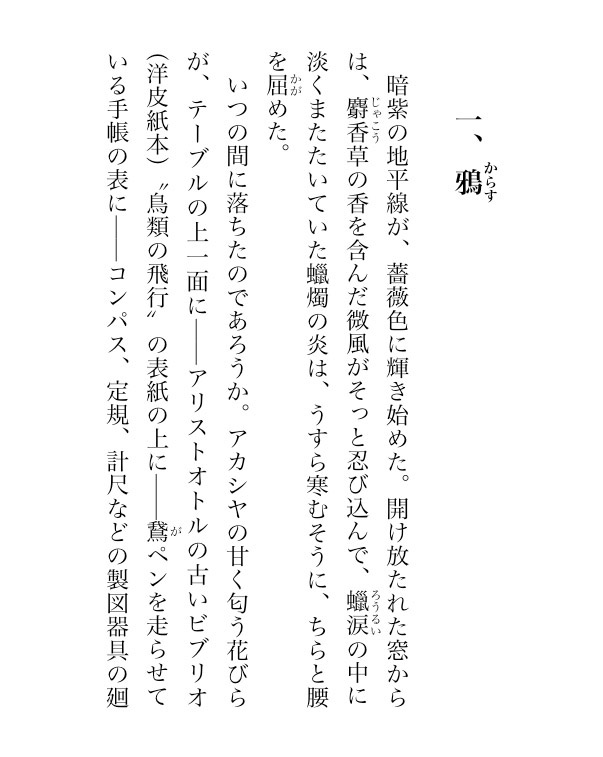 一、鴉
暗紫の地平線が、薔薇色に輝き始めた。開け放たれた窓から
は、麝香草の香を含んだ微風がそっと忍び込んで、蠟涙の中に
淡くまたたいていた蠟燭の炎は、うすら寒むそうに、ちらと腰
を屈めた。
いつの間に落ちたのであろうか。アカシヤの甘く匂う花びら
が、テーブルの上一面に――アリストオトルの古いビブリオ
(洋皮紙本)〝鳥類の飛行〟の表紙の上に――鵞ペンを走らせて
いる手帳の表に――コンパス、定規、計尺などの製図器具の廻